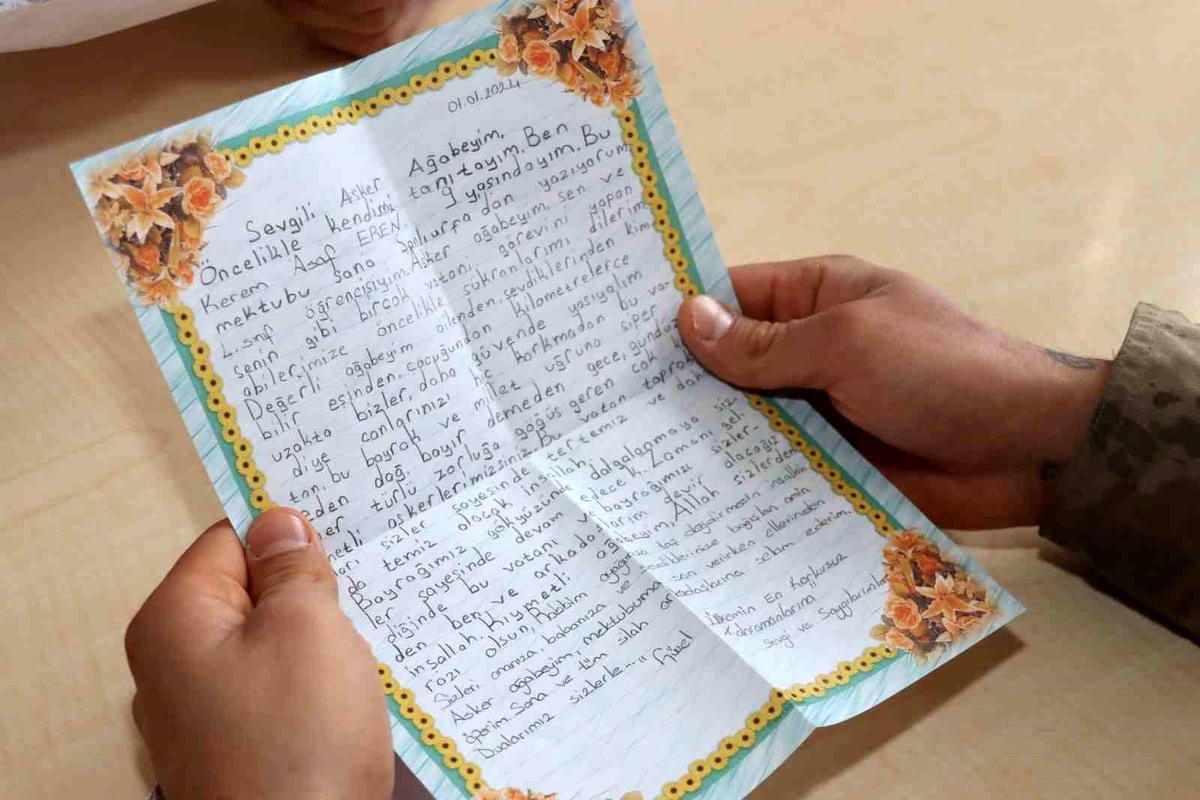 01.01.2024
Sevgili Asker Ağabeyim,
Öncelikle kendimi tanıtayım. Ben
Kerem Asaf EREN 9 yaşındayım. Bu
mektubu sana Şanlıurfa'dan yazıyorum
4. sınıf öğrencisiyim. Asker ağabeyim, sen ve
senin gibi birçok vatani görevini yapan
abilerimize öncelikle şükranlarımı dilerim.
Değerli ağabeyim ailenden, sevdiklerinden kim
bilir eşinden, çocuğundan kilometrelerce
uzakta bizler, daha güvende yaşayalım
diye canlarınızı korkmadan bu va-
tan, bu bayrak ve millet uğruna siper
eden dağ, bayır demeden gece, gündüz
her türlü zorluğa göğüs geren çok
metli askerlerimizsiniz. Bu vatan toprak
ları sizler sayesinde tertemiz ve daha
da temiz olacak inşallah,
Bayrağımız gökyüzünde dalgalanmaya siz-
ler sayesinde devam edecek. Zamanı gel-
diğinde bu vatanı ve bayrağımızı sizler-
den ben ve arkadaşlarım devir alacağız
inşallah. Kıymetli ağabeyim, Allah sizlerden
razı olsun, Rabbim taş değdirmesin inşallah
Sizleri ananıza, babanıza ve amin
Asker ağabeyim, mektubuma son verirken ellerinden
öperim. Sana ve tüm silah arkadaşlarına selam ederim.
Dualarımız sizlerle... " Güzel Ülkemin En Korkusuz
Kahramanlarına"
Sevgi ve Saygılarımla